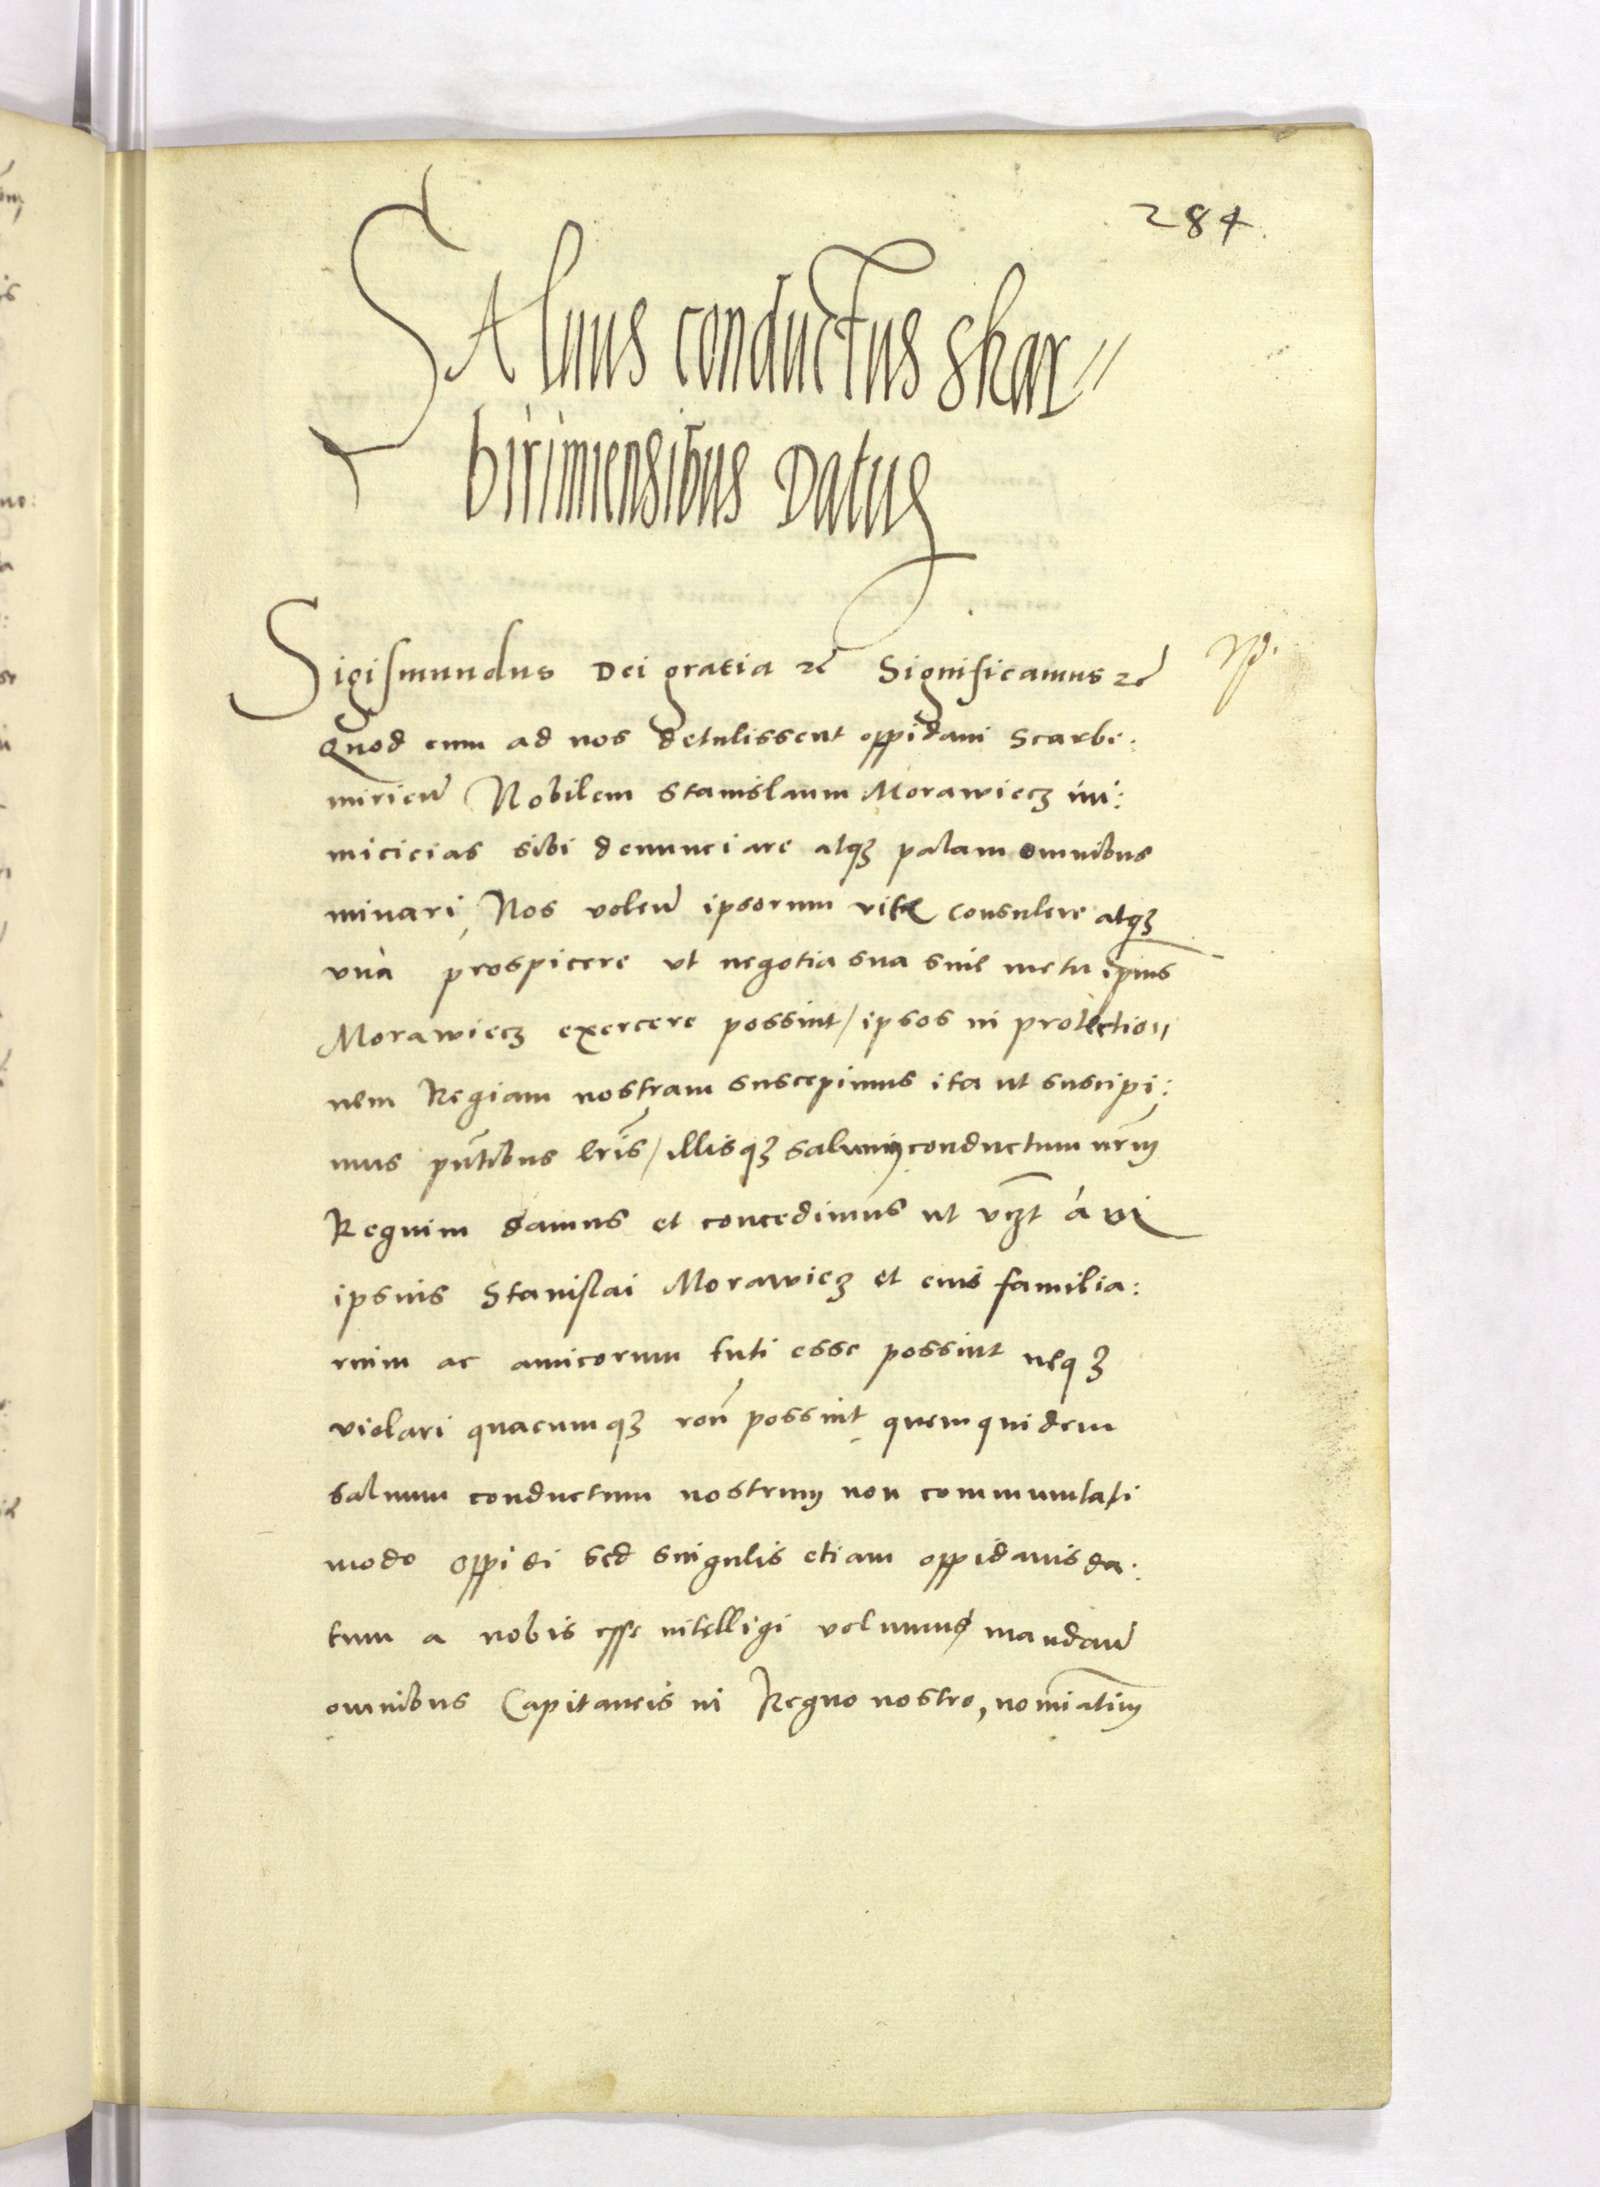 284
SAluus conductus skar //
birimiensibus Datus
Sigismundus Dei gratia rc̃ Significamus rc̃
Quod cum ad nos detulissent oppidani Scarbe:
mirien̄ Nobilem Stanislaum Morawiecz ini:
micicias sibi denunciare atqȝ palam omnibus
minari, Nos volen̄ ipsorum vitę consulere atqȝ
vnà prospicere vt negotia sua sine metu ip̄ius
Morawiecz exercere possint / ipsos in protectio //
nem Regiam nostram suscepimus ita ut suscipi:
mus pn̄tibus lr̄is / illisqȝ saluum conductum nr̄m
Regium damus et concedimus ut vȝt à vi
ipsius Stanislai Morawiecȝ et eius familia:
rium ac amicorum tuti esse possint neqȝ
violari quacumqȝ ron̄ possint quemquidem
saluum conductum nostrum non communitati
modo oppidi sed singulis etiam oppidanis da:
tum a nobis esse intelligi volumus mandan̄
omnibus Capitaneis in Regno nostro, nomīatim